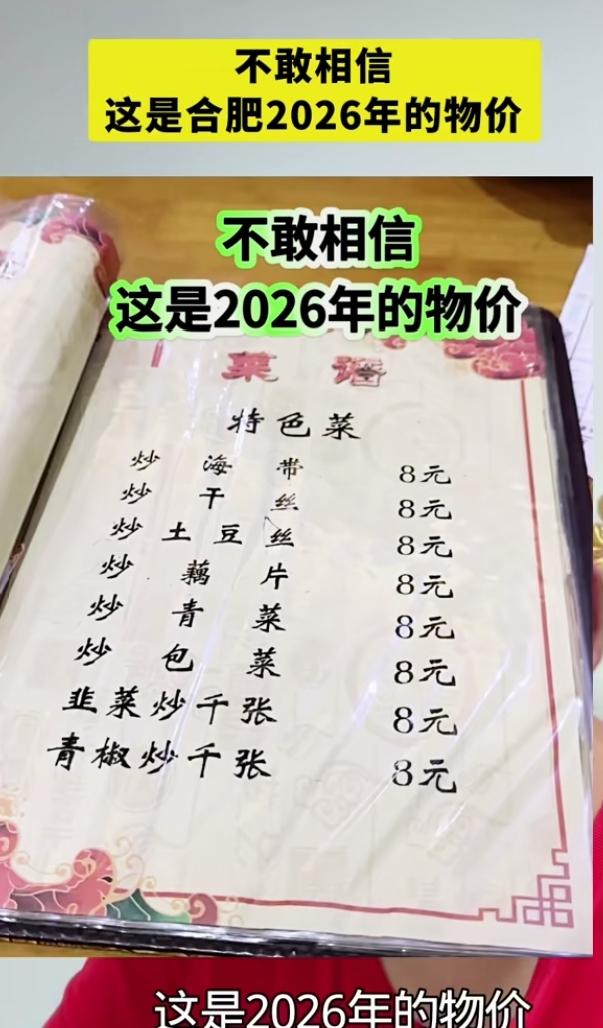 不敢相信
这是合肥2026年的物价
不敢相信
这是2026年的物价
菜 谱
特色菜
炒 海 带 8元
炒 干 丝 8元
炒 土 豆 丝 8元
炒 藕 片 8元
炒 青 菜 8元
炒 包 菜 8元
韭菜炒千张 8元
青椒炒千张 8元
这是2026年的物价